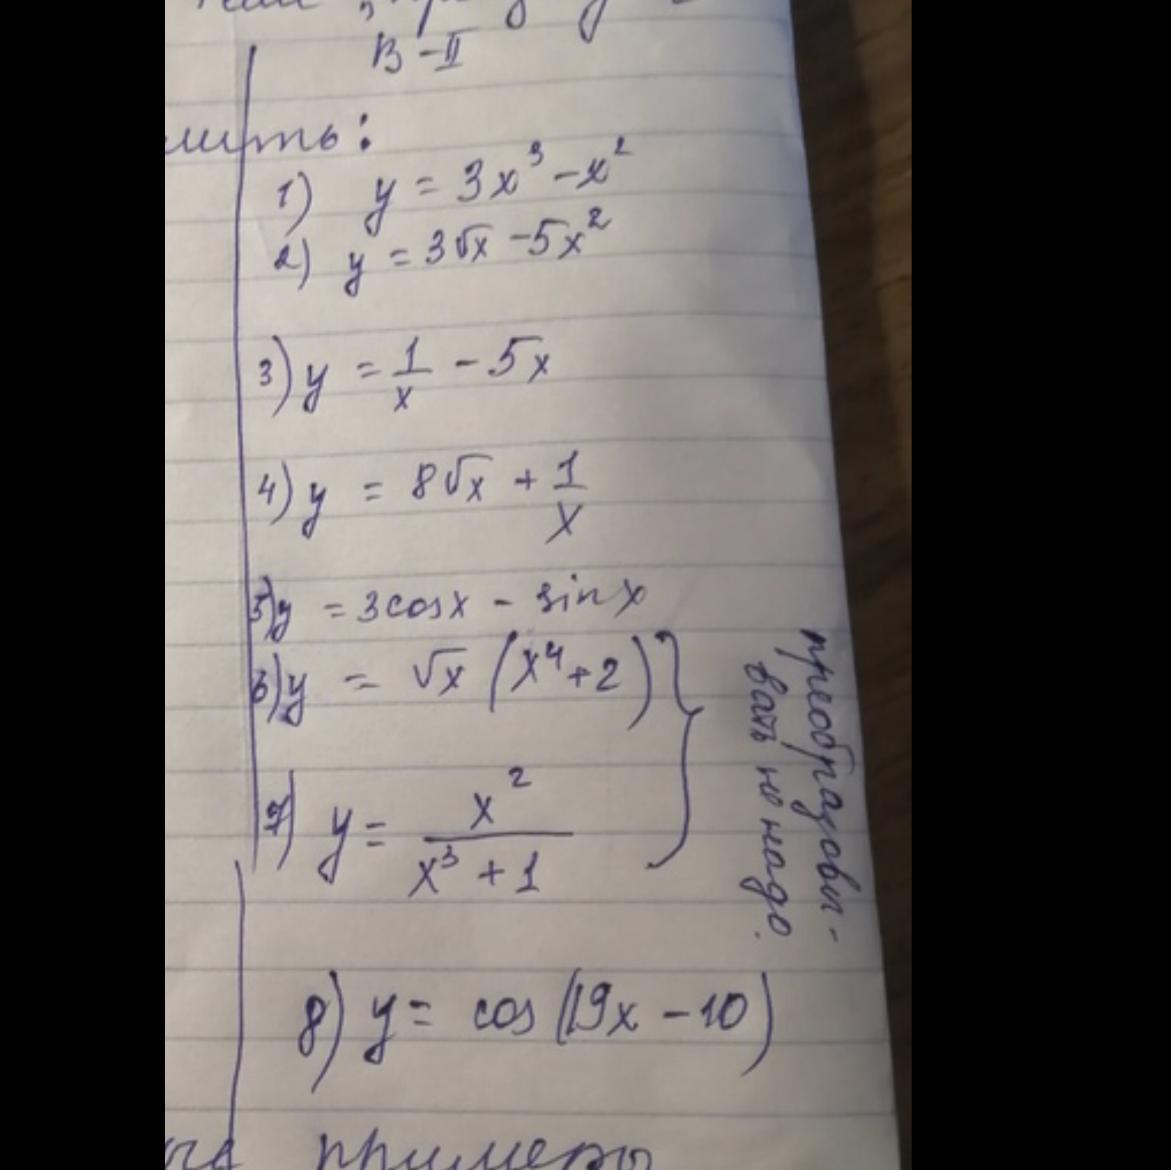 В-II
1) y = 3x³ - x²
2) y = 3√x - 5x²
3) y = 1/x - 5x
4) y = 8√x + 1/x
5) y = 3cosx - sinx
6) y = √x (x⁴+2)
7) y = x²/(x³ + 1)
преобразовы-
вать не надо.
8) y = cos(19x - 10)
примеры